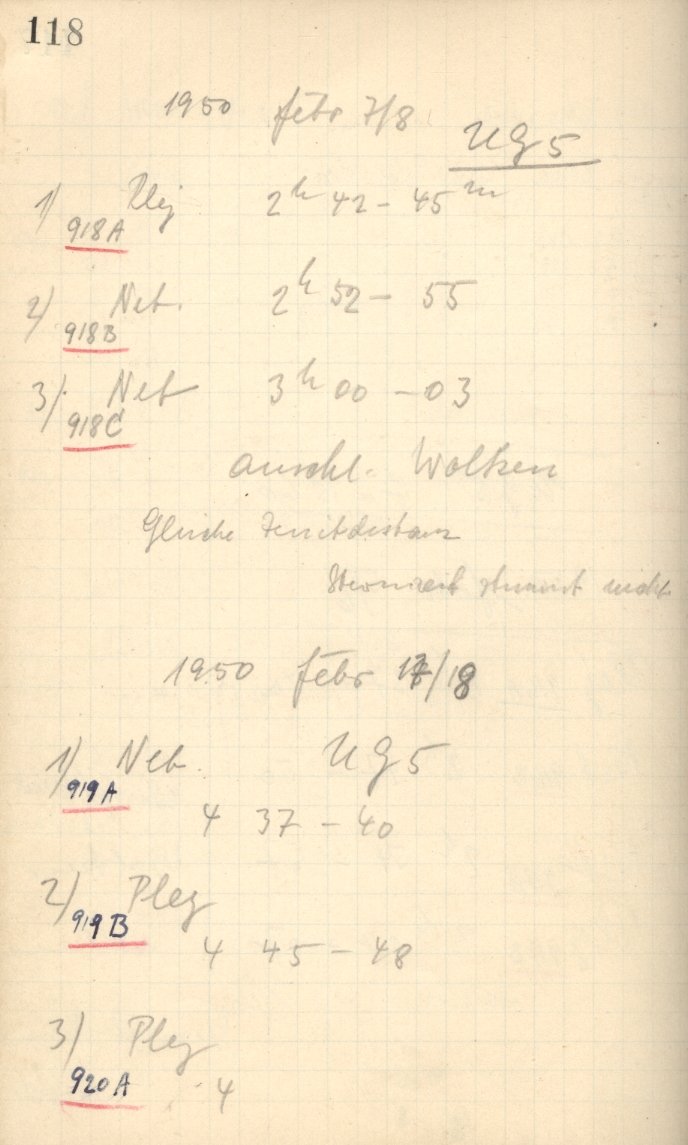 118
1950 febr 7/8
UG 5
1) Plej 2h 42 - 45 m
918A
2) Neb. 2h 52 - 55
918B
3) Neb 3h 00 - 03
918C
anschl. Wolken
Gleiche Zenitdistanz
Sternzeit stimmt nicht
1950 febr 17/18
1) Neb. UG 5
919A
4 37 - 40
2) Plej
919B
4 45 - 48
3) Plej
920A 4